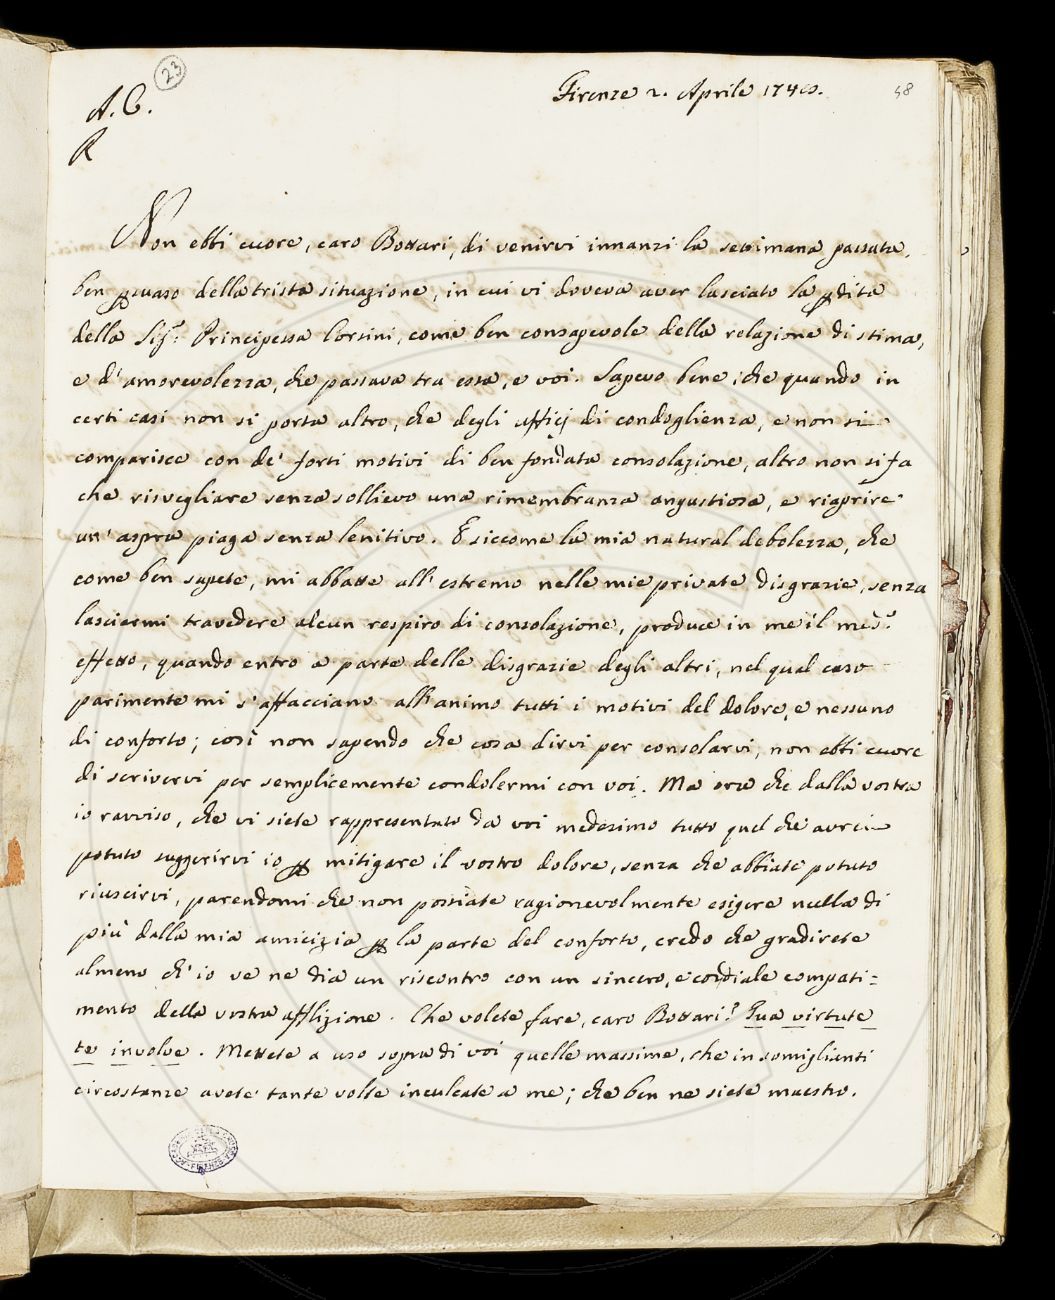 23
A. C.
R
Firenze 2. Aprile 174
58
Non ebbi cuore, caro Bottari, di venirvi innanzi la settimana passata,
ben psuaso della trista situazione, in cui vi doveva aver lasciato la pdita
della Sig.ra Principessa Corsini, come ben consapevole della relazione di stima,
e d'amorevolezza, che passava tra essa, e voi. Sapevo bene, che quando in
certi casi non si porta altro, che degli ufficj di condoglienza, e non si
comparisce con de' forti motivi di ben fondata consolazione, altro non si fa
che risvegliare senza sollievo una rimembranza angustiosa, e riaprire
un' aspra piaga senza lenitivo. E siccome la mia natural debolezza, che
come ben sapete, mi abbatte all' estremo nelle mie private disgrazie, senza
lasciarmi travedere alcun respiro di consolazione, produce in me il mes.o
effetto, quando entro a parte delle disgrazie degli altri, nel qual caso
parimente mi s' affacciano all' animo tutti i motivi del dolore, e nessuno
di conforto; così non sapendo che cosa dirvi per consolarvi, non ebbi cuore
di scrivervi per semplicemente condolermi con voi. Ma ora che dalla vostra
io ravviso, che vi siete rappresentato da voi medesimo tutto quel che avrei
potuto suggerirvi io p mitigare il vostro dolore, senza che abbiate potuto
riuscirvi, parendomi che non possiate ragionevolmente esigere nulla di
più dalla mia amicizia p la parte del conforto, credo che gradirete
almeno ch' io ve ne dia un riscontro con un sincero, e cordiale compati=
mento della vostra afflizione. Che volete fare, caro Bottari? Tua virtute
te involve. Mettete a uso sopra di voi quelle massime, che in somiglianti
circostanze avete tante volte inculcate a me; che ben ne siete maestro.